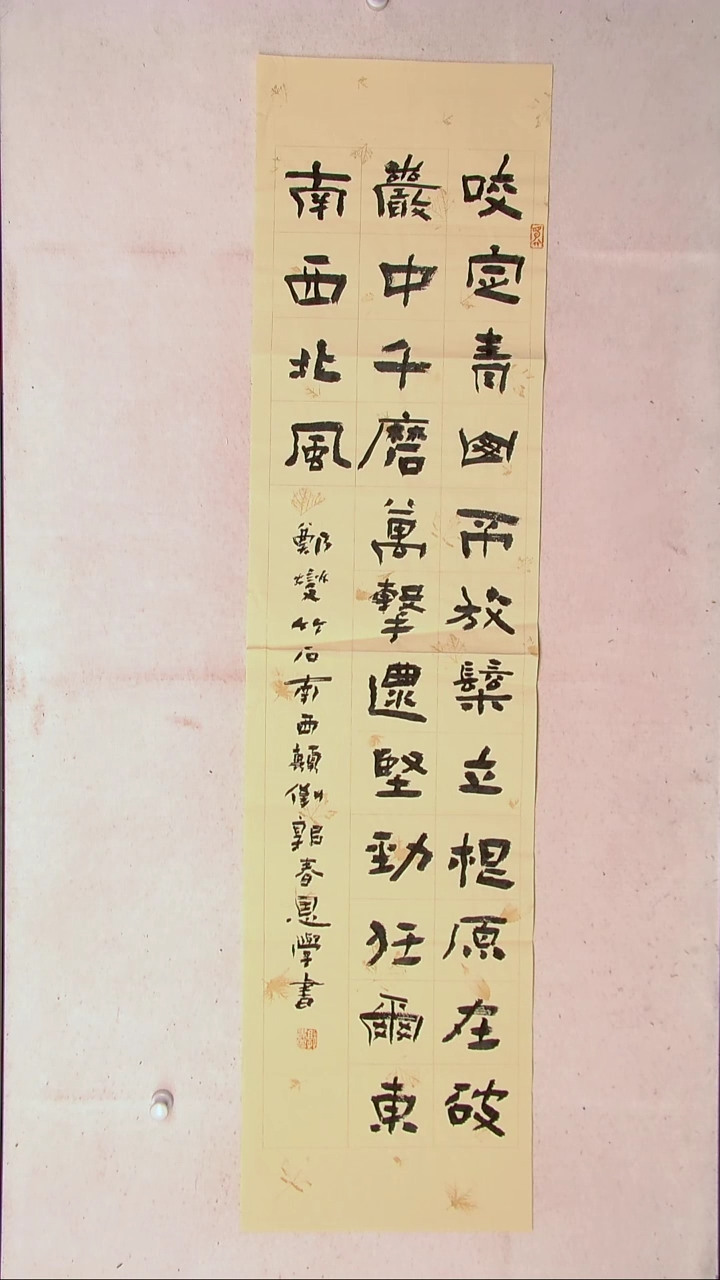 咬定青山不放鬆立根原在破
巖中千磨萬擊還堅勁任爾東
南西北風
鄭燮竹石南西顛倒郭春恩學書